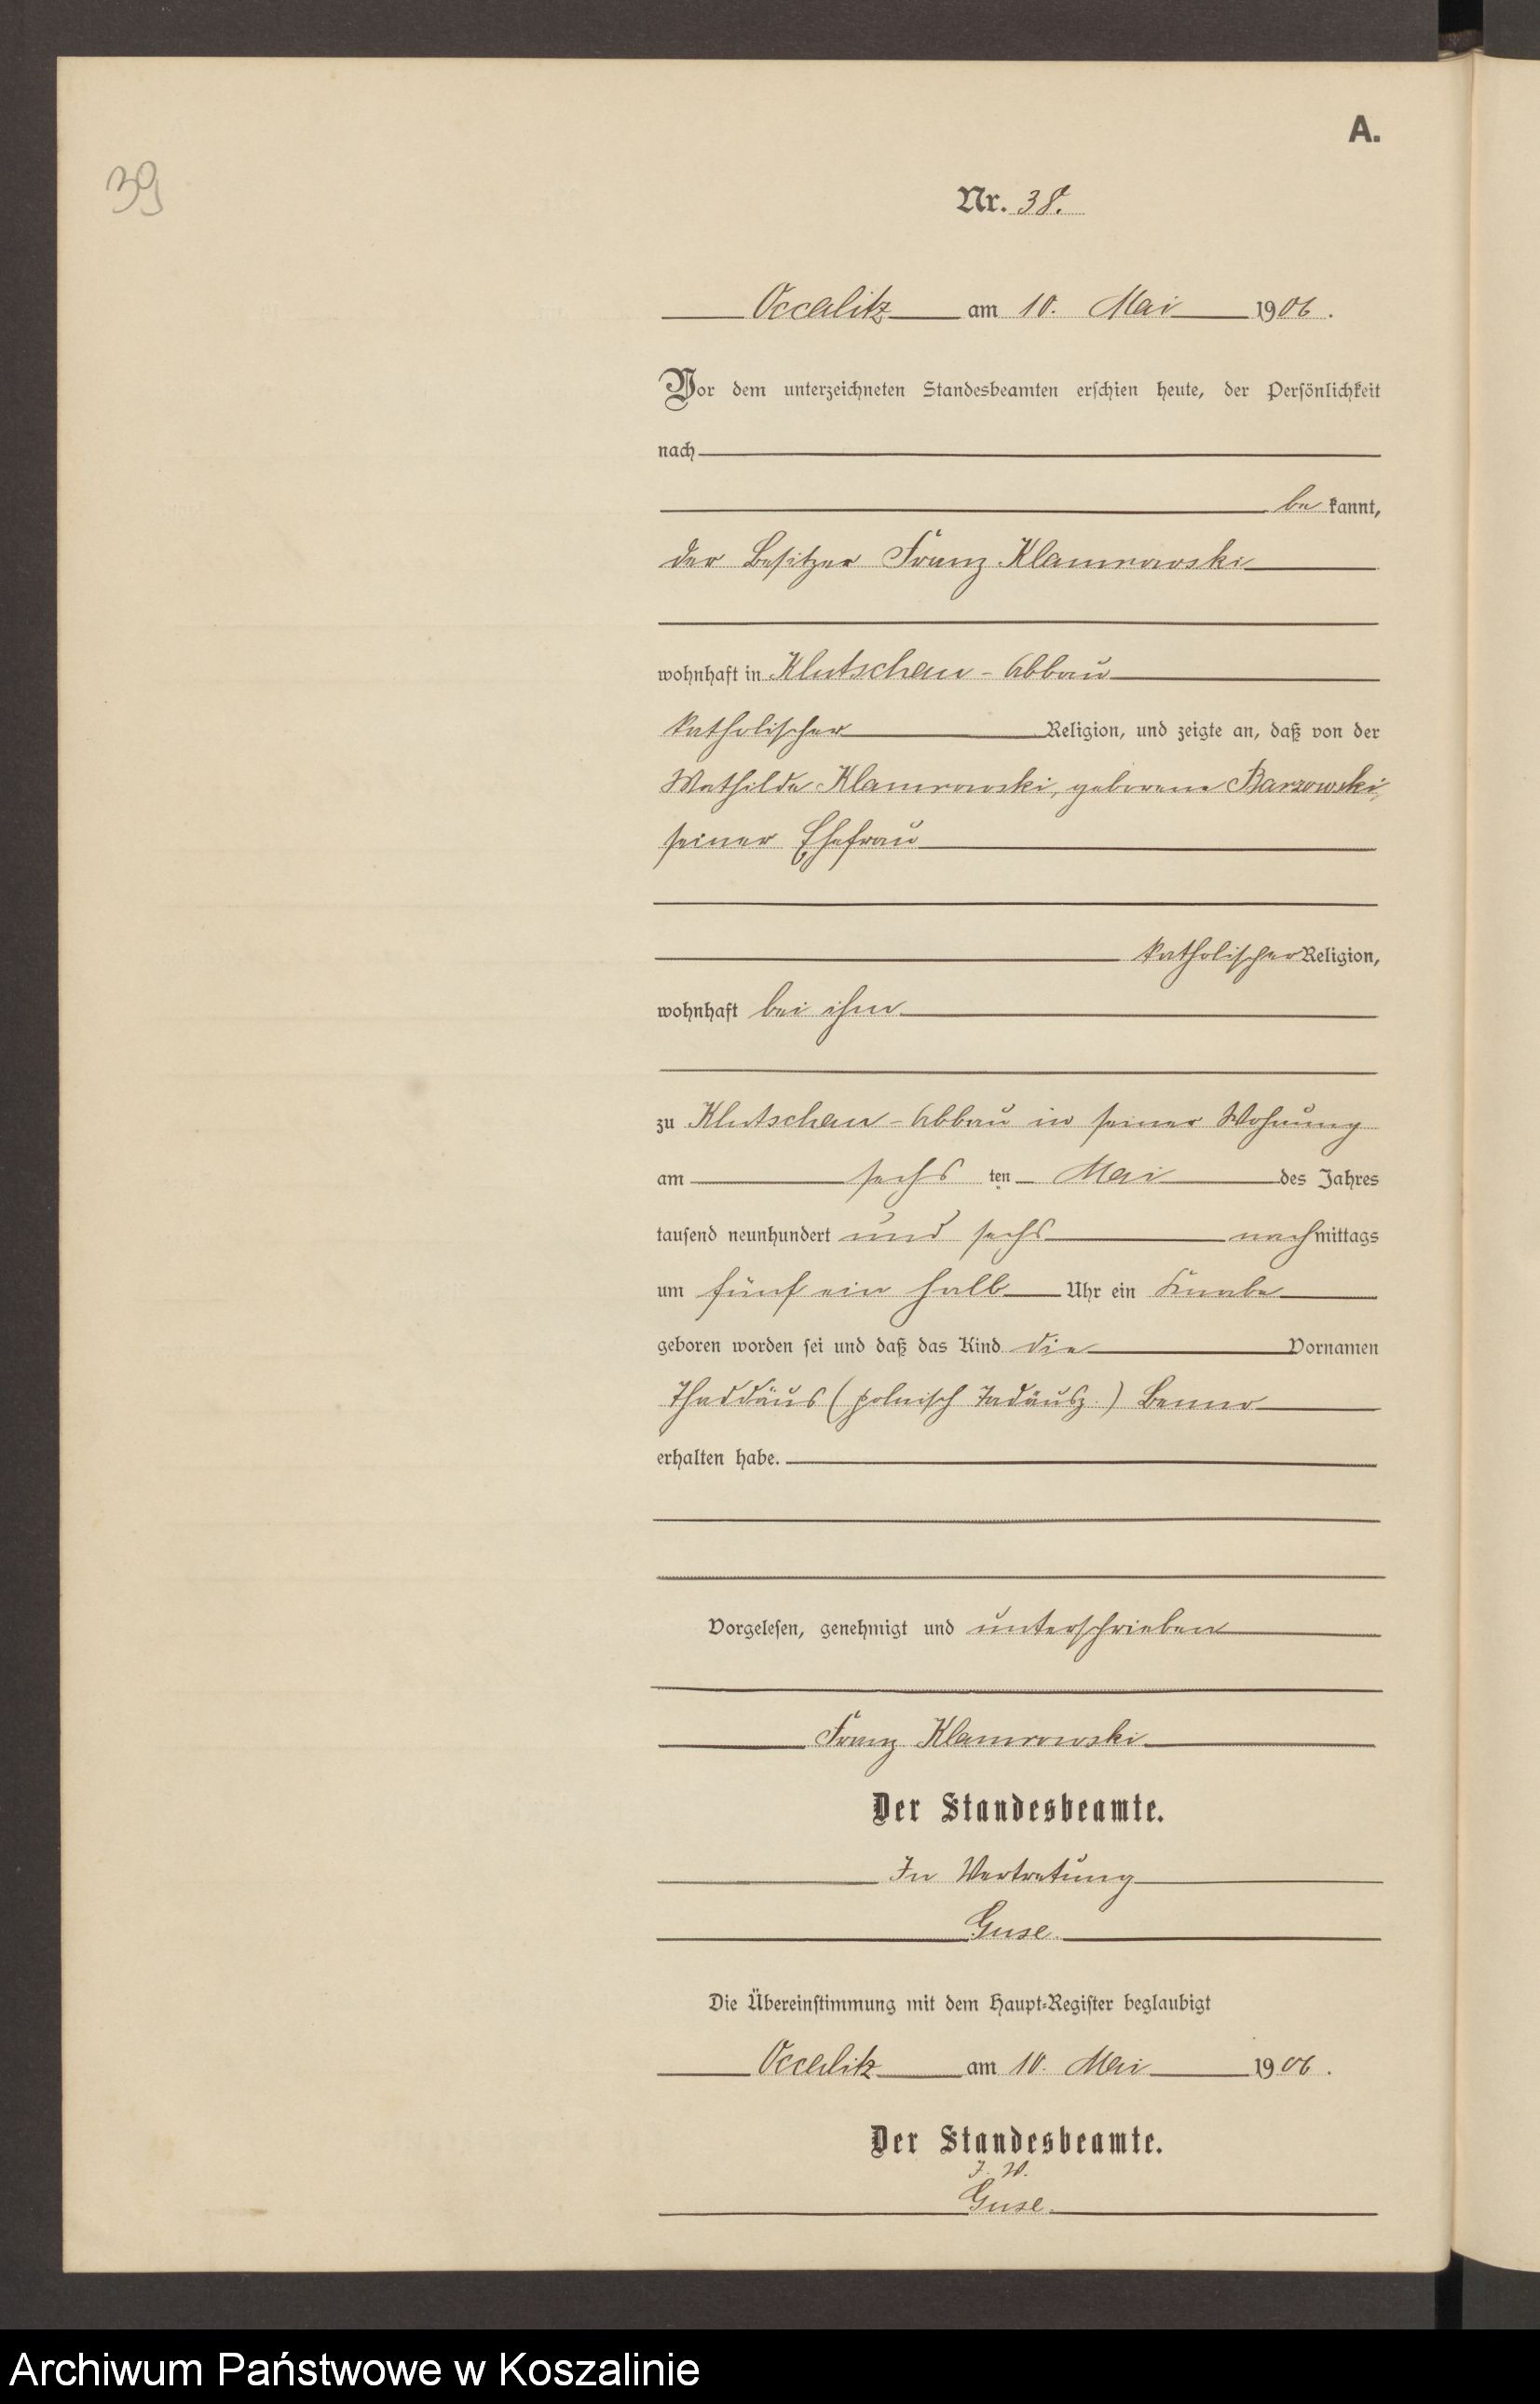 A.
39
Nr. 38.
Occalitz am 10. Mai 1906.
Vor dem unterzeichneten Standesbeamten erschien heute, der Persönlichkeit
nach
be kannt,
der Besitzer Franz Klamrowski
wohnhaft in Klutschau - Abbau
katholischer Religion, und zeigte an, daß von der
Mathilde Klamrowski, geborene Barzowski,
seiner Ehefrau
katholischer Religion,
wohnhaft bei ihm
zu Klutschau - Abbau in seiner Wohnung
am sechs ten Mai des Jahres
tausend neunhundert und sechs nachmittags
um fünf ein halb Uhr ein Knabe
geboren worden sei und daß das Kind die Vornamen
Thaddäus (polnisch Tadäusz.) Benno
erhalten habe.
Vorgelesen, genehmigt und unterschrieben
Franz Klamrowski
Der Standesbeamte.
In Vertretung
Guse.
Die Übereinstimmung mit dem Haupt-Register beglaubigt
Occalitz am 10. Mai 1906.
Der Standesbeamte.
J. V.
Guse.
Archiwum Państwowe w Koszalinie